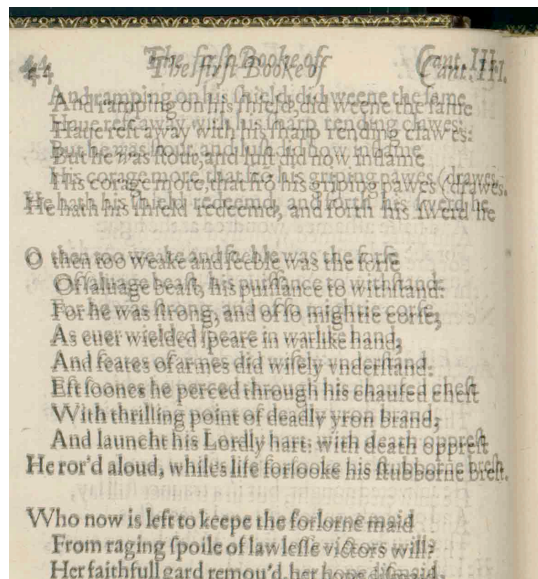 44 The first Booke of Cant. III.
And ramping on his shield, did weene the same
Haue reft away with his sharp rending clawes:
But he was stout, and lust did now inflame
His corage more, that frõ his griping pawes (drawes.
He hath his shield redeemd, and forth his swerd he
O then too weake and feeble was the forse
Of saluage beast, his puissance to withstand:
For he was strong, and of so mightie corse,
As euer wielded speare in warlike hand,
And feates of armes did wisely vnderstand.
Eftsoones he perced through his chaufed chest
With thrilling point of deadly yron brand,
And launcht his Lordly hart: with death opprest
He ror'd aloud, whiles life forsooke his stubborne brest.
Who now is left to keepe the forlorne maid
From raging spoile of lawlesse victors will?
Her faithfull gard remou'd, her hope dismaid,